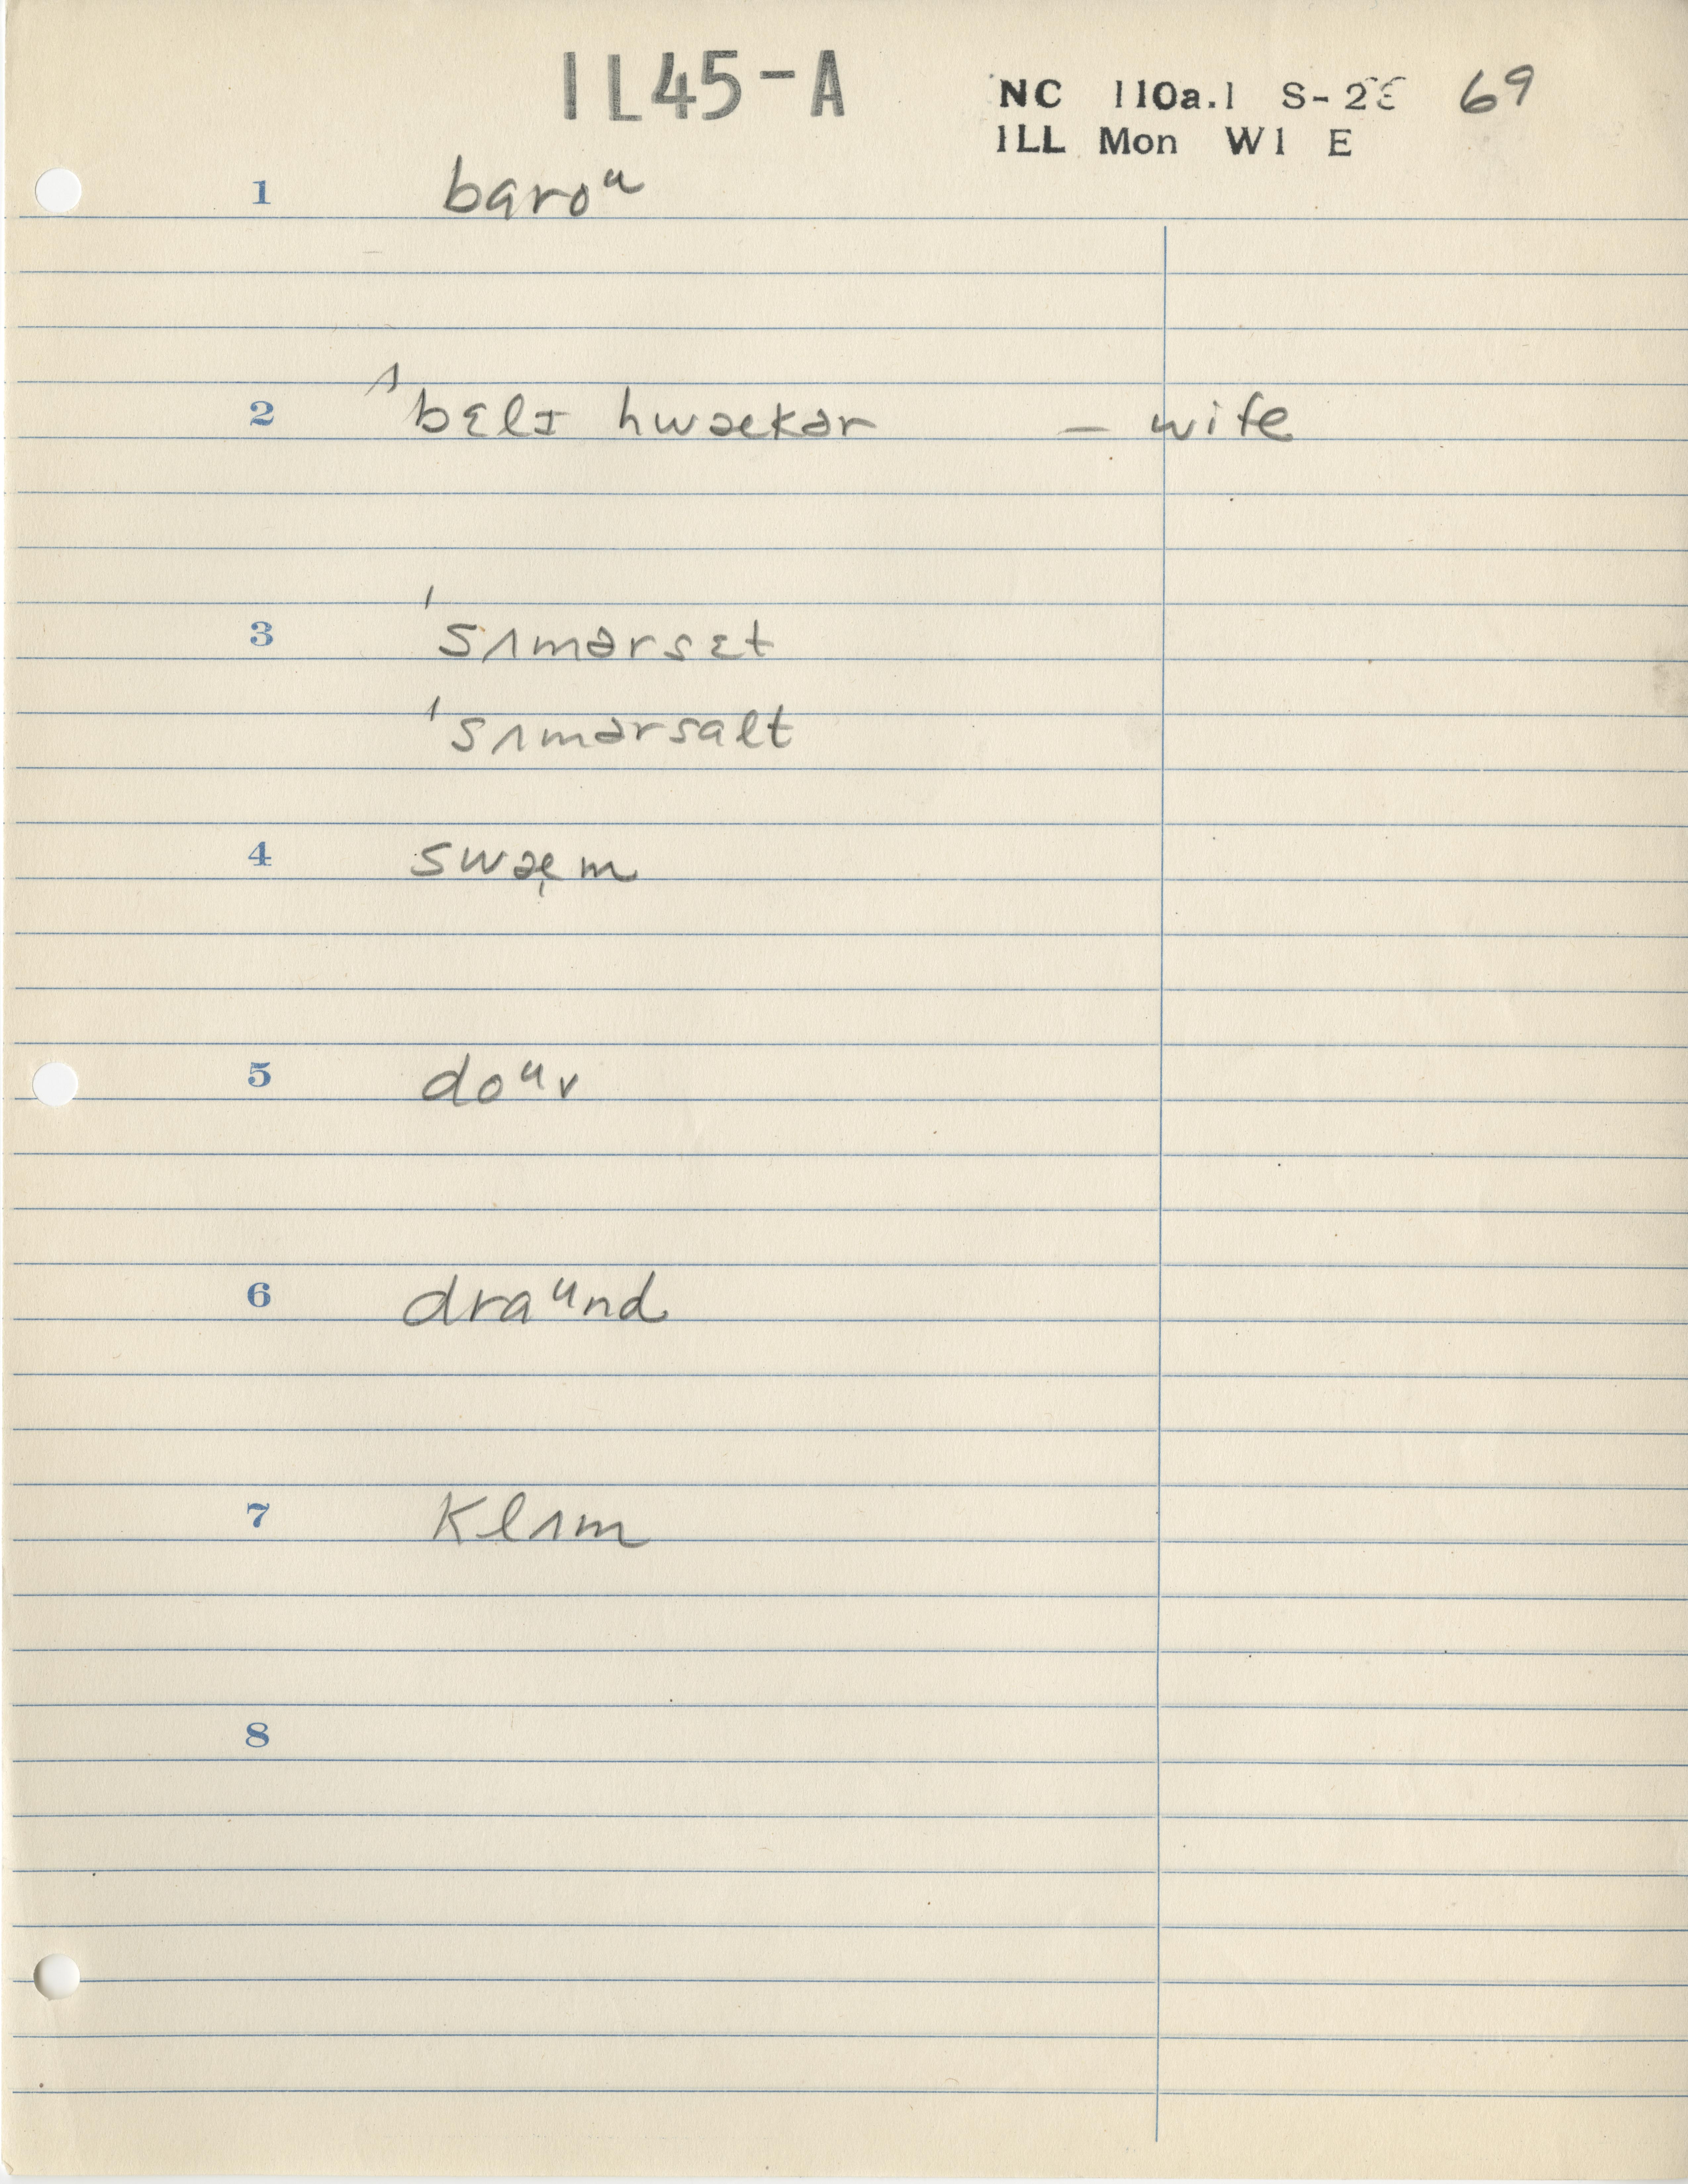 IL45-A
NC 110a.1 S-26 69
ILL Mon W1 E
1 baroᵘ
2 ˈbɛlɪ hwækər – wife
3 ˈsʌmərsɛt
ˈsʌmərsalt
4 swæ̨m
5 doᵘv
6 draᵘnd
7 klʌm
8